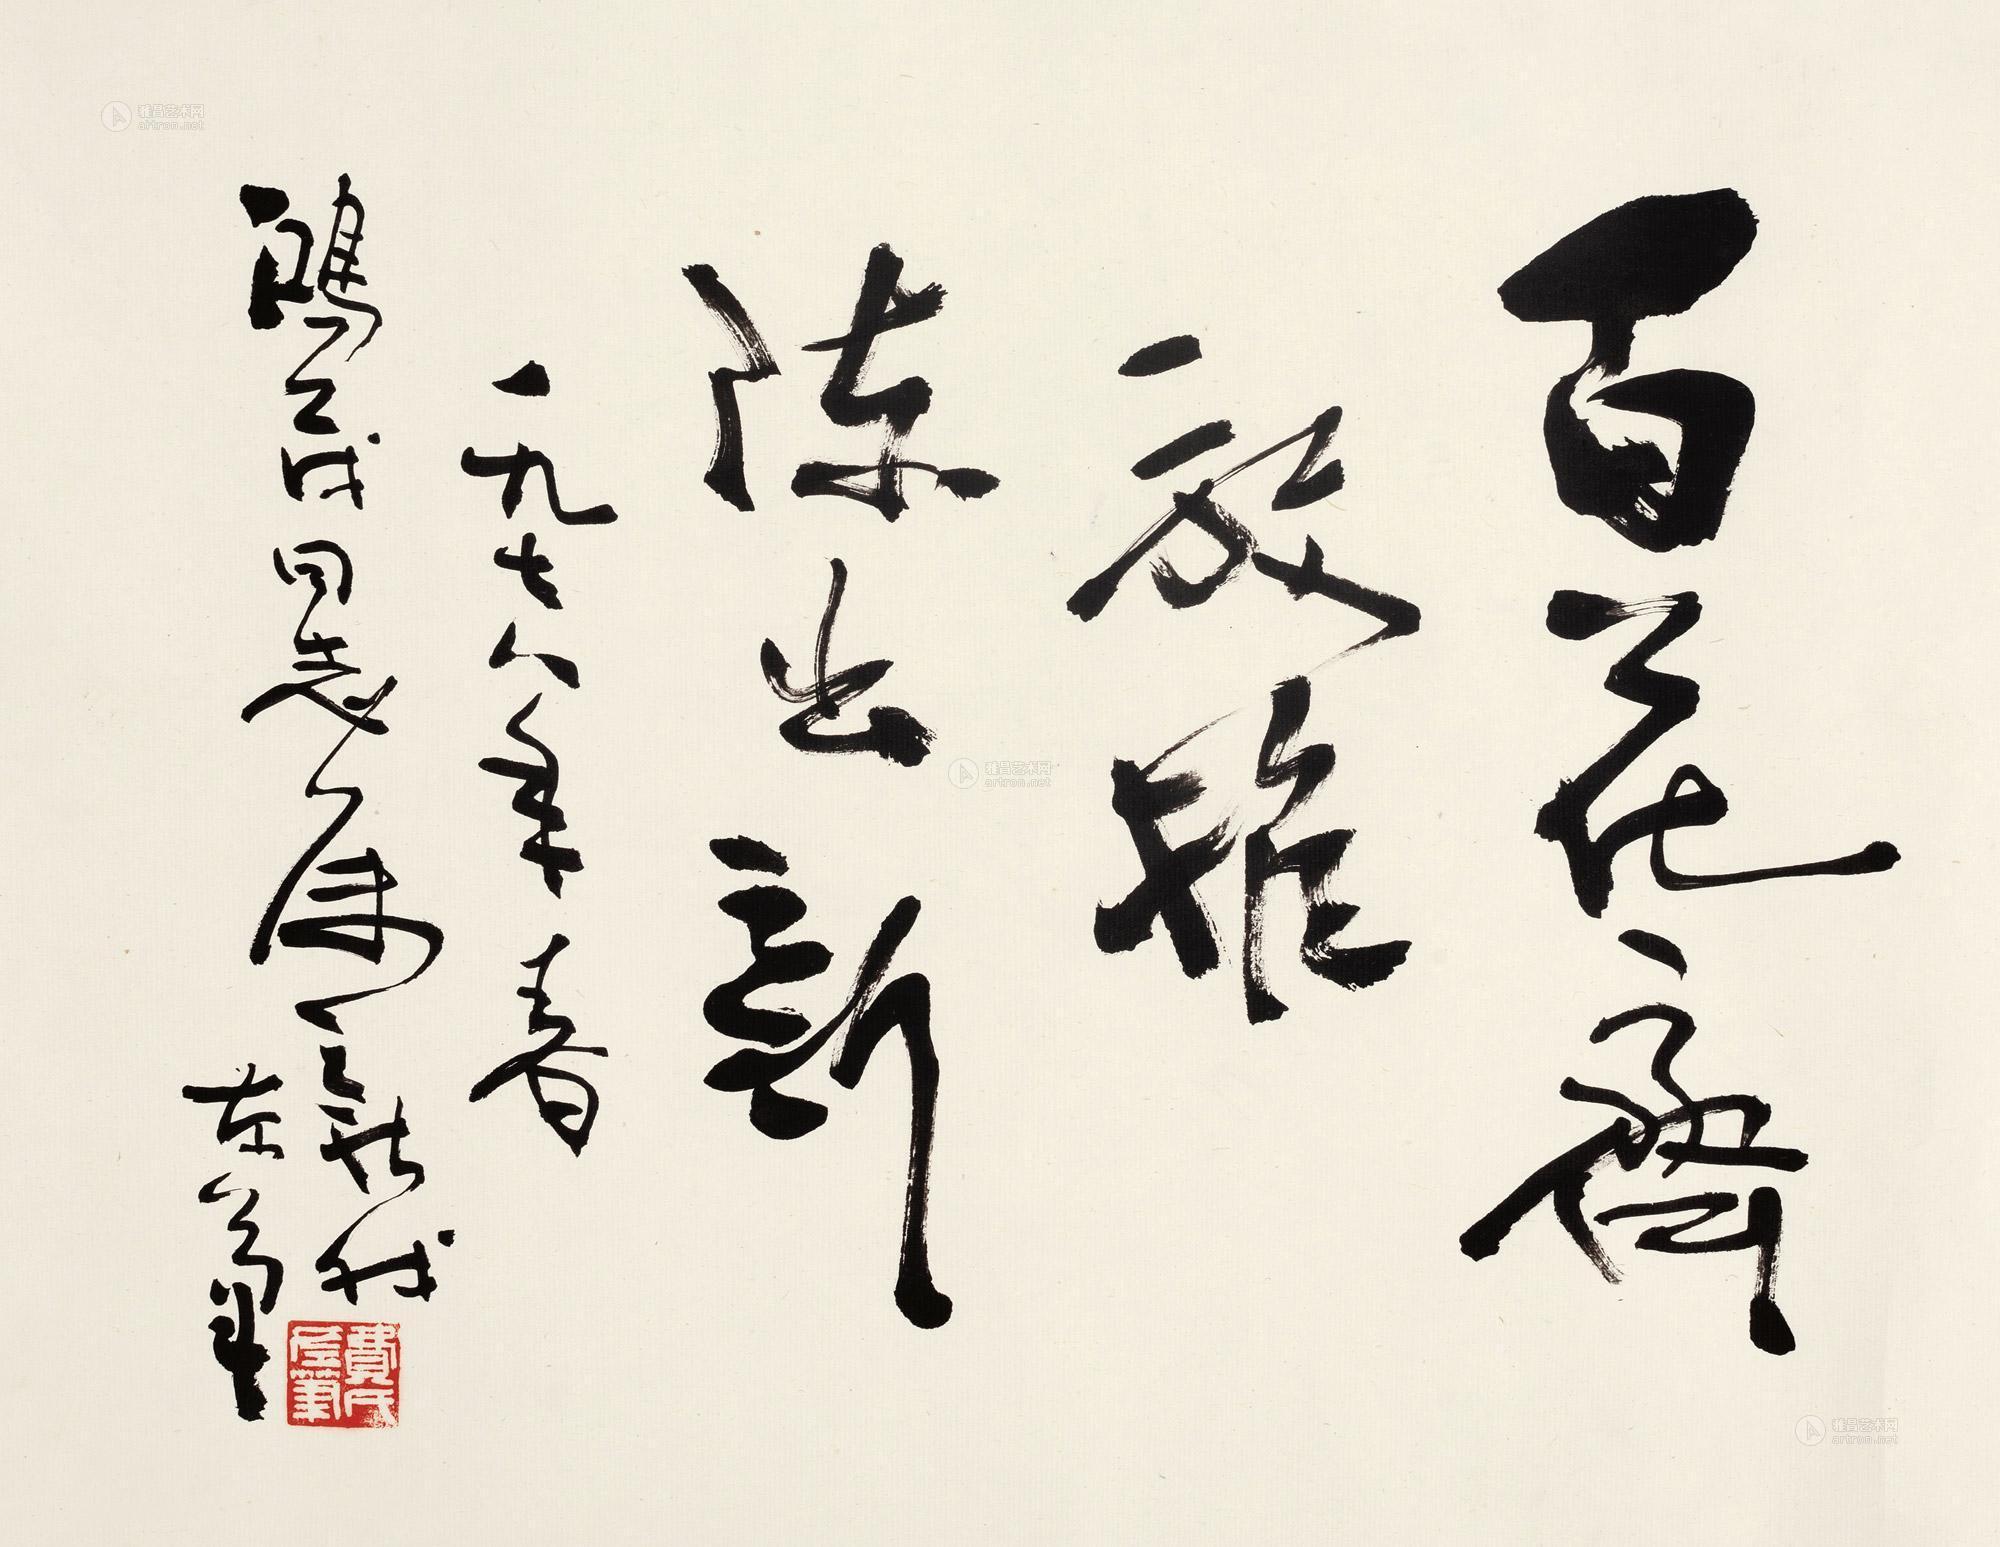 百花齊
放推
陳出新
一九七八年春
鴻茂同志屬 新我
左筆
費氏左筆
雅昌艺术网
artron.net
雅昌艺术网
artron.net
雅昌艺术网
artron.net